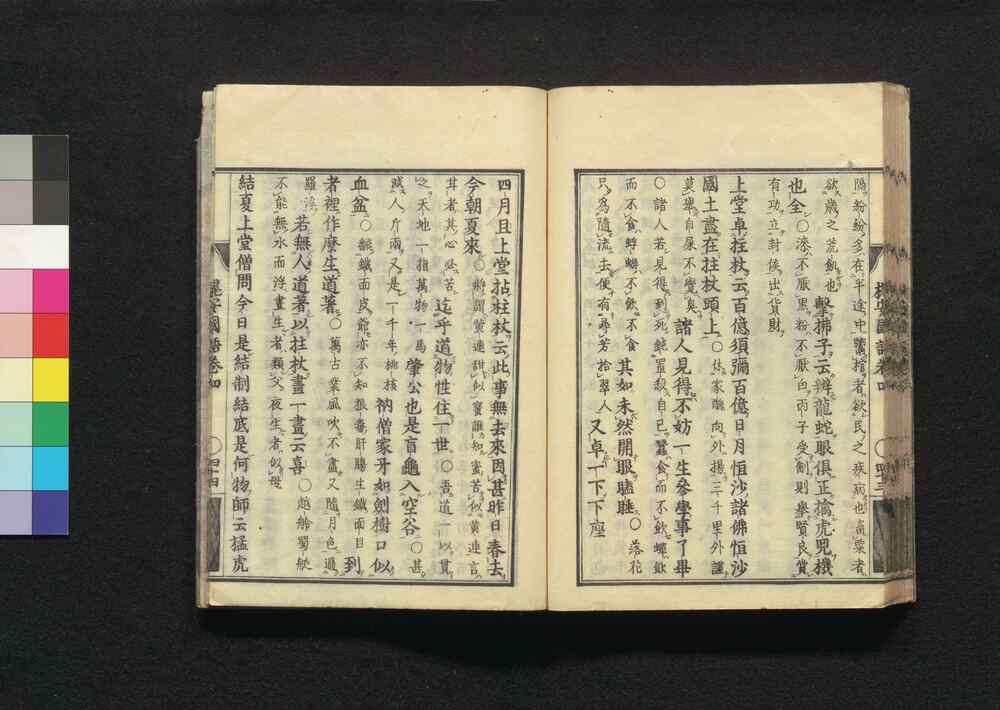 隔紛紛多在半途中鬻楷者欲民之疾病也畜粟者
欲歳之荒飢也 擊拂子云辨龍蛇眼俱正擒虎兕機
也全 ○漆不厭黒粉不厭白丙子受劑則擧賢良賞
有功立封侯出貨財
上堂卓拄杖云百億須彌百億日月恒沙諸佛恒沙
國土盡在拄杖頭上 ○休家醜向外揚三千里外謹
莫擧自屎不覺臭 諸人見得不妨一生參學事了畢
○諸人若見得到死鈍置殺自己蠶食而不飲蟬飲
而不食蜉蝣不飲不食 其如未然開眼瞌睡 ○落花
只爲隨流去便有尋芳拾翠人 又卓一下下座
四月旦上堂拈柱杖云此事無去來因甚昨日春去
今朝夏來 ○將謂黄連甜似蜜誰知蜜苦似黄連言
甘者其心必苦 近乎道物性住一世 ○吾道一以貫
之天地一指萬物一馬 肇公也是盲龜入空谷 ○甚
賊人斤兩又是一千年桃核 衲僧家牙如劍樹口似
血盆 ○齩鐵面皮爺亦不知狼毒肝腸生鐵面目 到
者裡作麼生道著 ○萬古業風吹不盡又隨月色過
羅 若無人道著以拄杖畫一畫云喜 ○越舲蜀艇
不能無水而浮晝生者類父夜生者似母
結夏上堂僧問今日是結制結底是何物師云猛虎
槐安國語卷四
○四十四